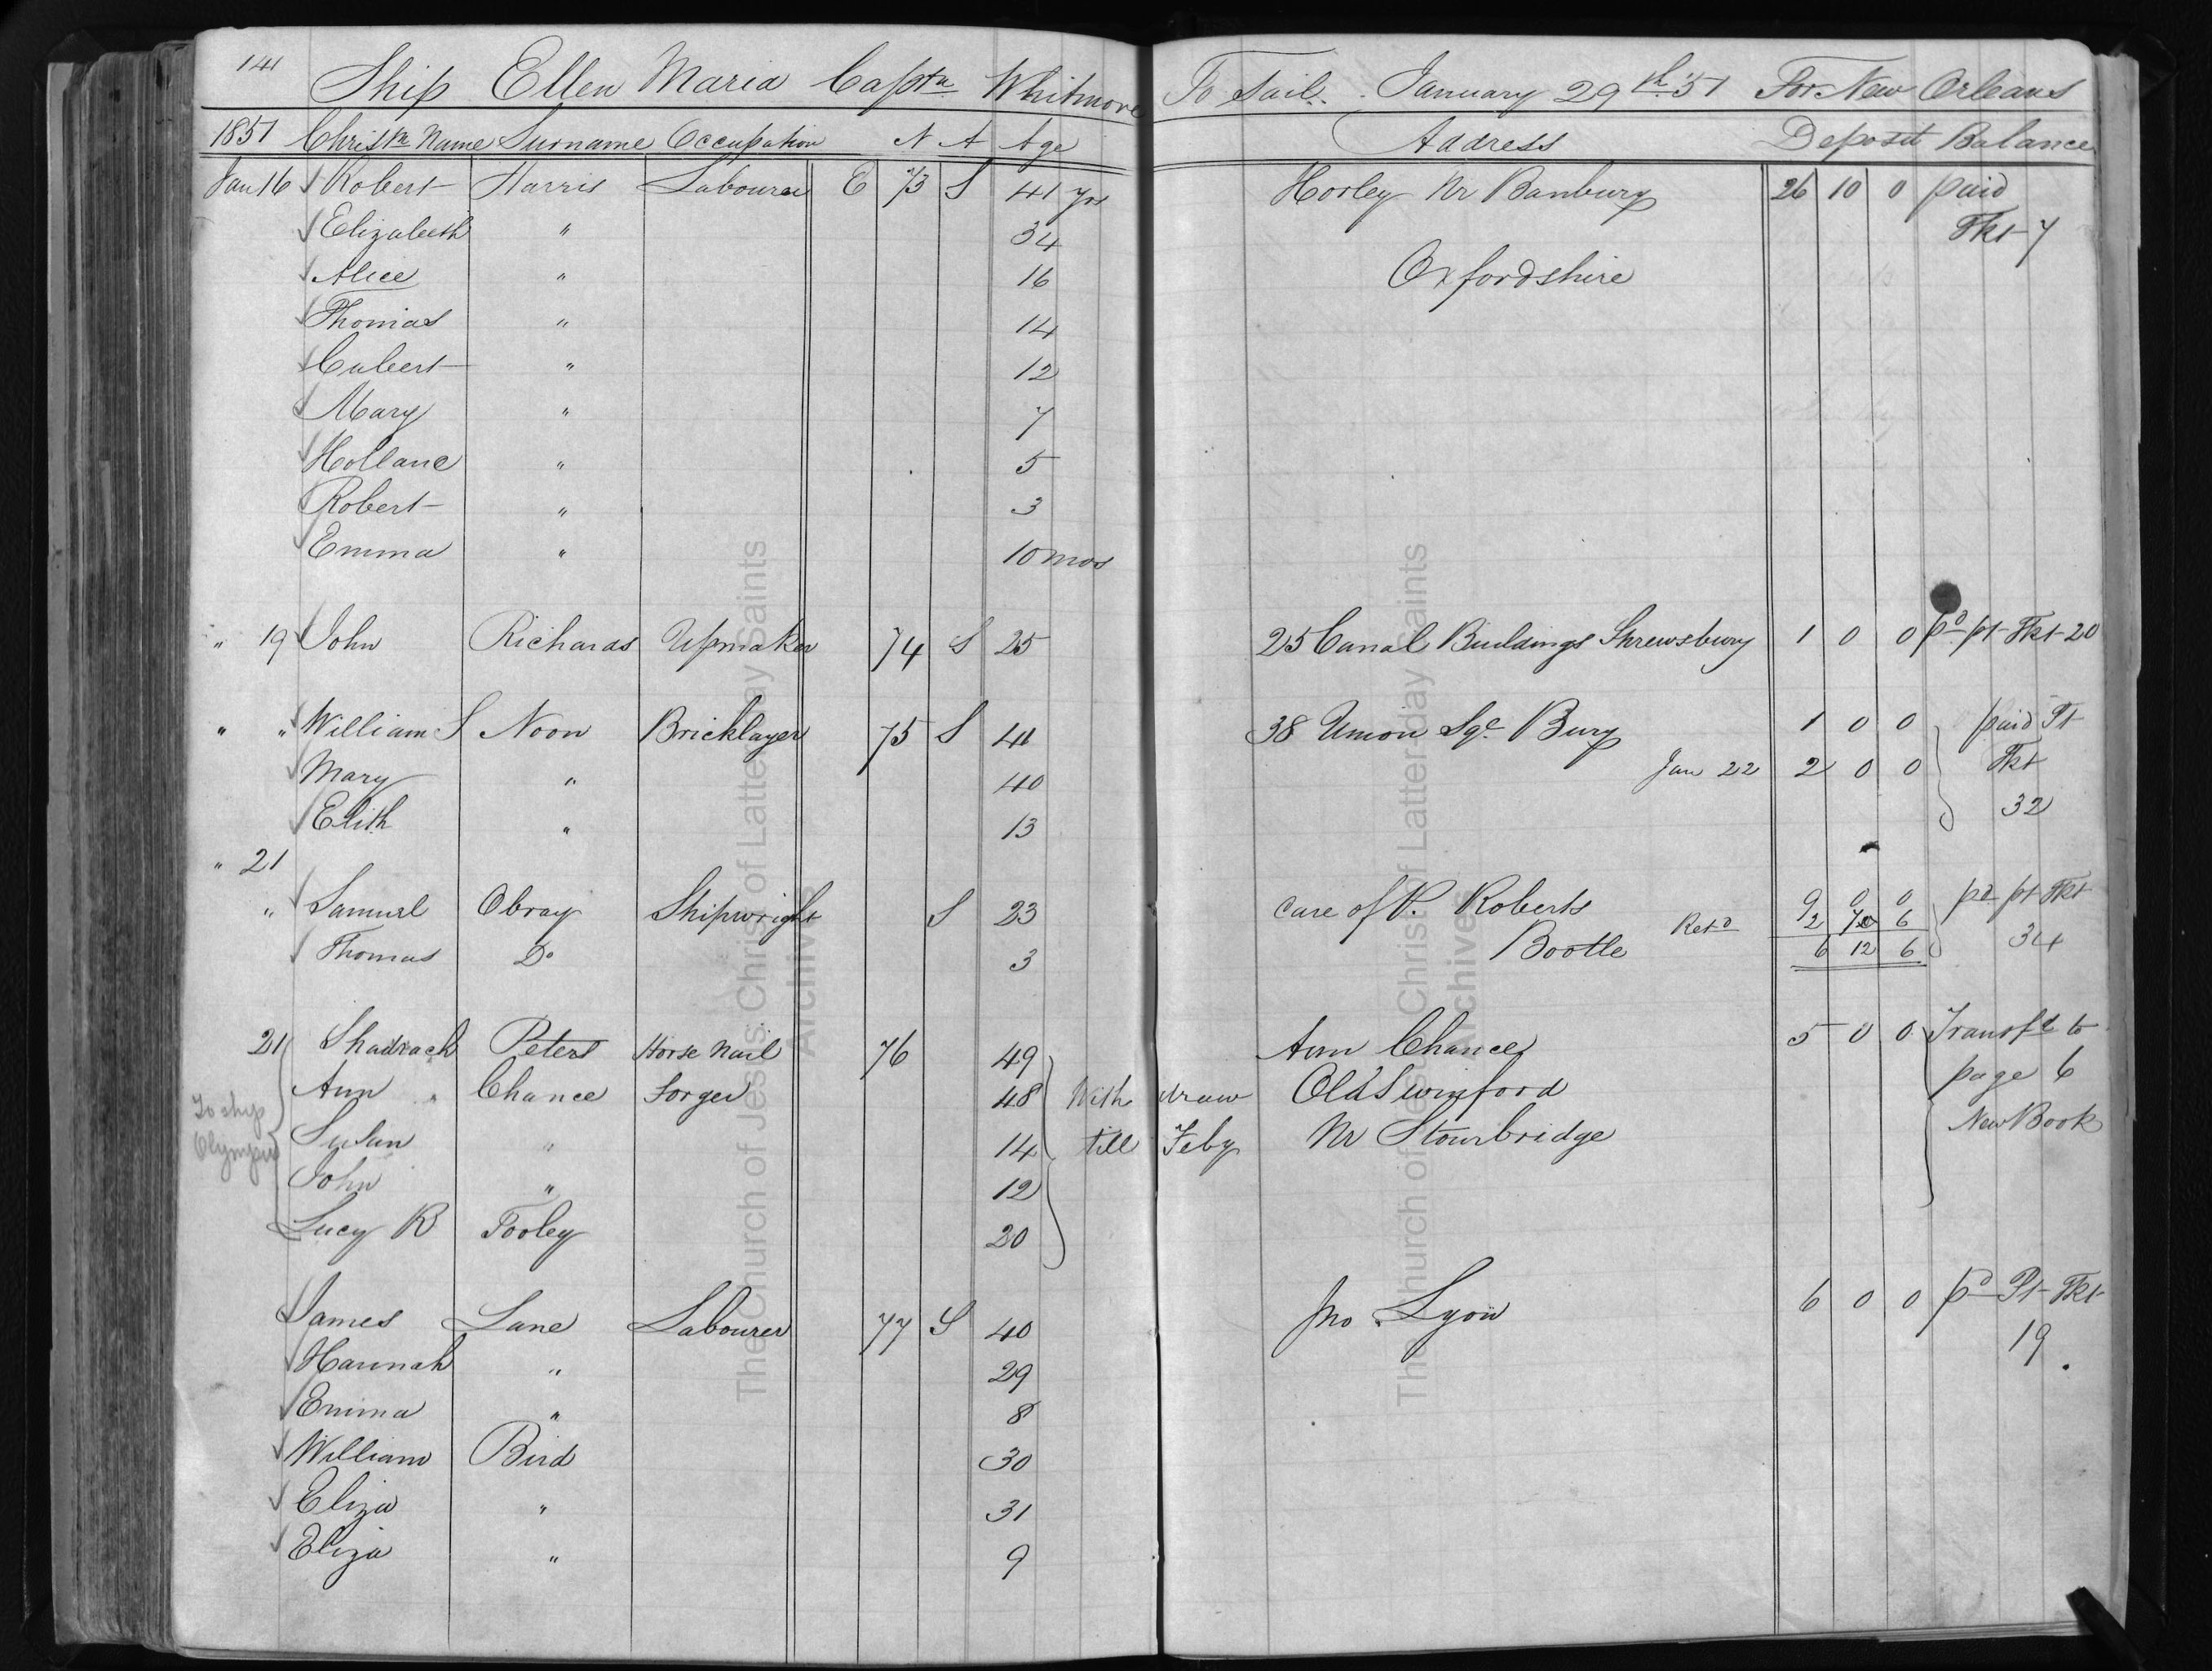 141
Ship Ellen Maria Captn Whitmore To Sail. January 29th 51 For New Orleans
1851 Christn Name Surname Occupation N A Age Address Deposit Balance
Jan 16 Robert Harris Labourer E 73 S 41 yrs Horley Nr Banbury 26 10 0 paid
Elizabeth " 34 Tkt 7
Alice " 16 Oxfordshire
Thomas " 14
" 12
Mary " 7
" 5
Robert " 3
Emma " 10 mos
" 19 John Richards Upmaker 74 S 25 25 Canal Buildings Shrewsbury 1 0 0 pd pt Tkt 20
" " William S Noon Bricklayer 75 S 41 38 Union Sqe Bury 1 0 0 paid Pt
Mary " 40 Jan 22 2 0 0 Tkt
Elith " 13 32
" 21
" Samuel Obray Shipwright S 23 care of P. Roberts 9 0 0 pd pt Tkt
Retd 2 6
Thomas Do 3 Bootle 6 12 6 34
21 Shadrach Peters Horse Nail 76 49 Ann Chance 5 0 0 Transfd to
Ann " Chance Forger 48 With draw Old Swinford page 6
To ship
Susan " 14 till Feby Nr Stourbridge New Book
Olympus
John " 12
Lucy R Tooley 20
James Lane Labourer 77 S 40 Jno. Lyon 6 0 0 pd Pt Tkt
Hannah " 29 19.
Emma " 8
William Bird 30
Eliza " 31
Eliza " 9
The Church of Jesus Christ of Latter-day Saints
Archives
The Church of Jesus Christ of Latter-day Saints
Archives